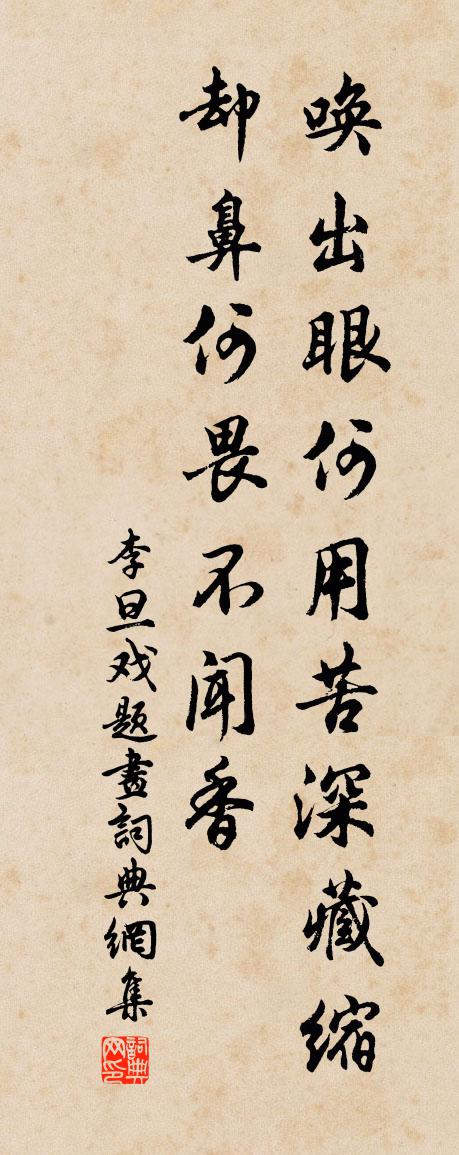 唤出眼何用苦深藏缩
却鼻何畏不闻香
李旦戏题畫詞典網集
詞典网印